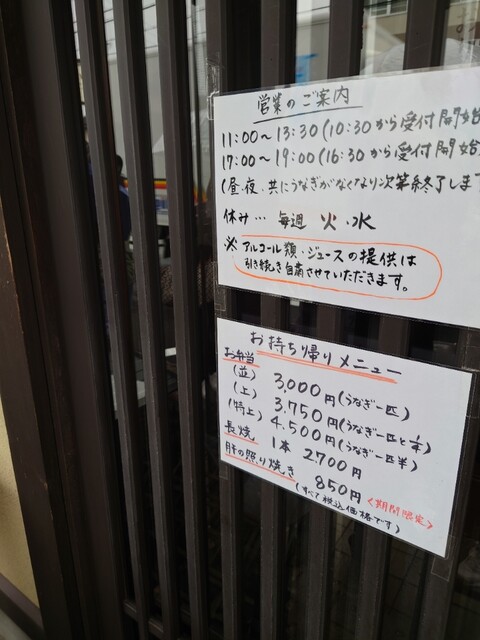 営業のご案内
11:00〜13:30(10:30から受付開始
17:00〜19:00(16:30から受付開始
(昼・夜・共にうなぎがなくなり次第終了します
休み… 毎週 火・水
※アルコール類・ジュースの提供は
引き続き自粛させていただきます。
お持ち帰りメニュー
お弁当
(並) 3,000円(うなぎ一匹)
(上) 3,750円(うなぎ一匹と1/4)
(特上) 4,500円(うなぎ一匹半)
長焼 1本 2700円
肝の照り焼き 850円<期間限定>
(すべて税込価格です)